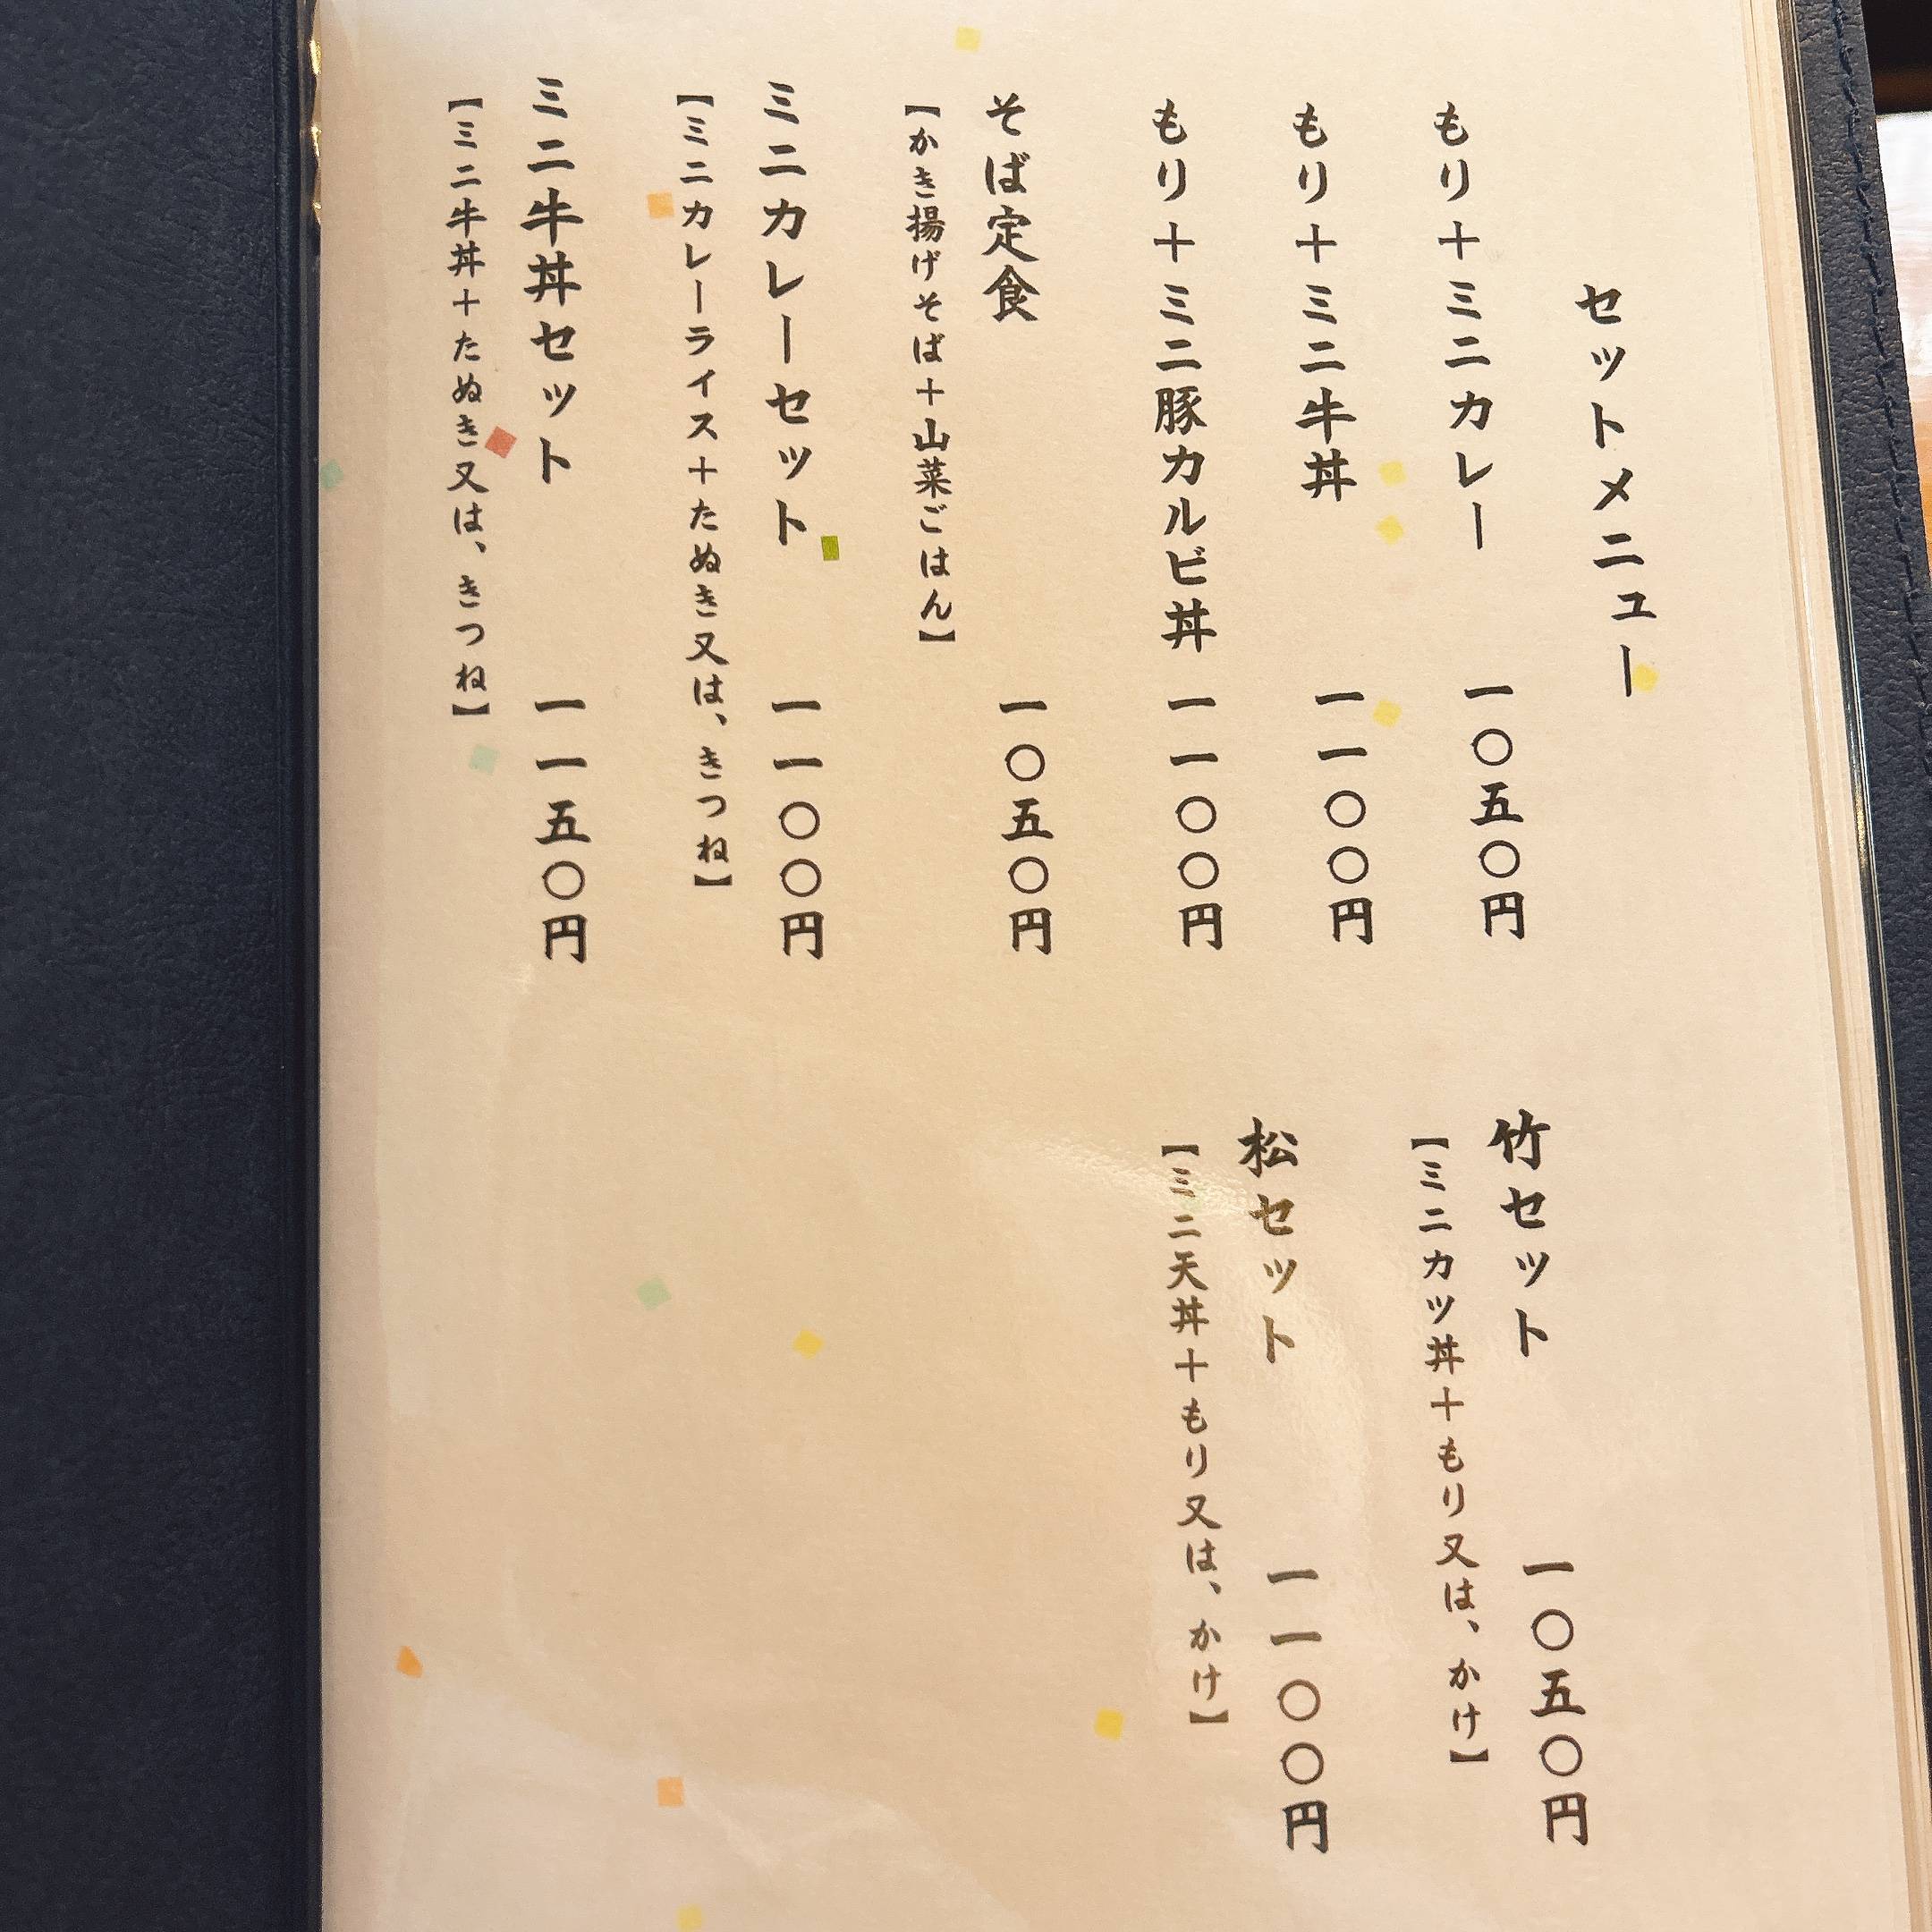 セットメニュー
もり＋ミニカレー 一〇五〇円
もり＋ミニ牛丼 一一〇〇円
もり＋ミニ豚カルビ丼 一一〇〇円
そば定食 一〇五〇円
【かき揚げそば＋山菜ごはん】
ミニカレーセット 一一〇〇円
【ミニカレーライス＋たぬき又は、きつね】
ミニ牛丼セット 一一五〇円
【ミニ牛丼＋たぬき又は、きつね】
竹セット 一〇五〇円
【ミニカツ丼＋もり又は、かけ】
松セット 一一〇〇円
【ミニ天丼＋もり又は、かけ】